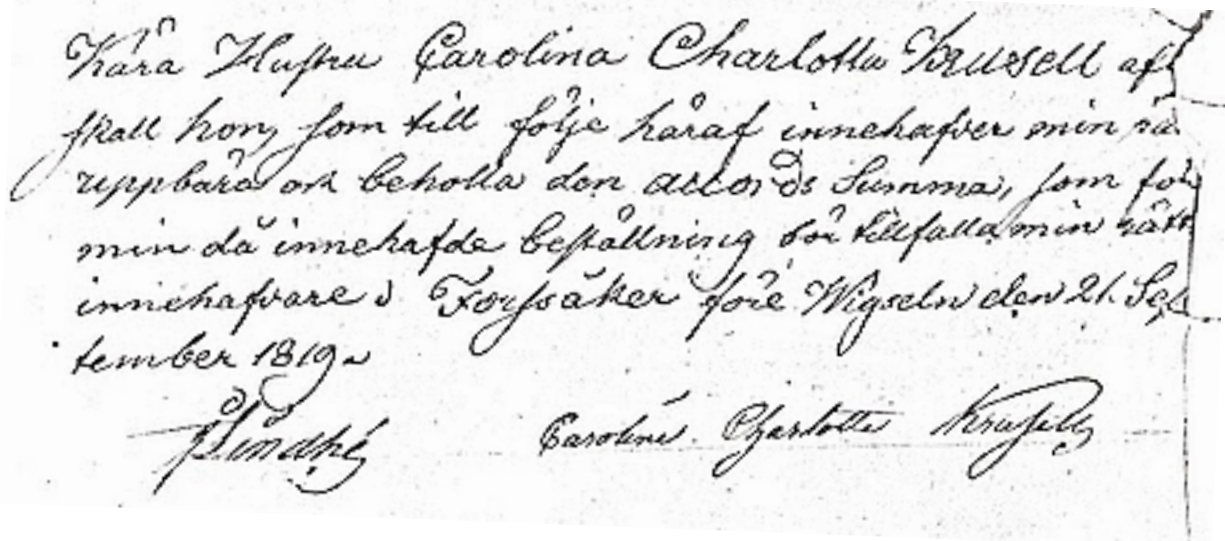 Kära Hustru Carolina Charlotta Krusell af
skall hon, som till följe häraf innehafver min rä
uppbära och behålla den accords Summa, som för
min då innehafde beställning bör tillfalla min rätt
innehafvare. Forssåker före Wigseln den 21. Sep
tember 1819.
Caroline Charlotte Krusell